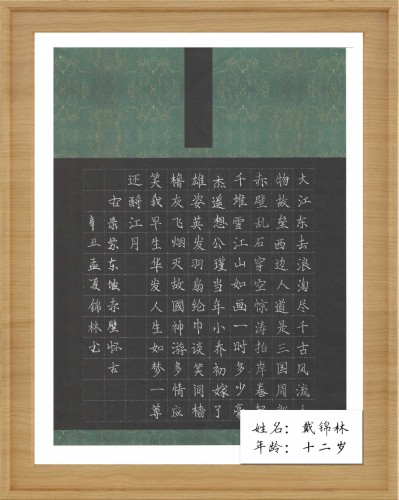 大江东去浪淘尽千古风流人
物故垒西边人道是三国周郎
赤壁乱石穿空惊涛拍岸卷起
千堆雪江山如画一时多少豪
杰遥想公瑾当年小乔初嫁了
雄姿英发羽扇纶巾谈笑间樯
橹灰飞烟灭故國神游多情应
笑我早生华发人生如梦一尊
还酹江月
录苏东坡赤壁怀古
辛丑孟夏锦林书
姓名：戴锦林
年龄：十二岁